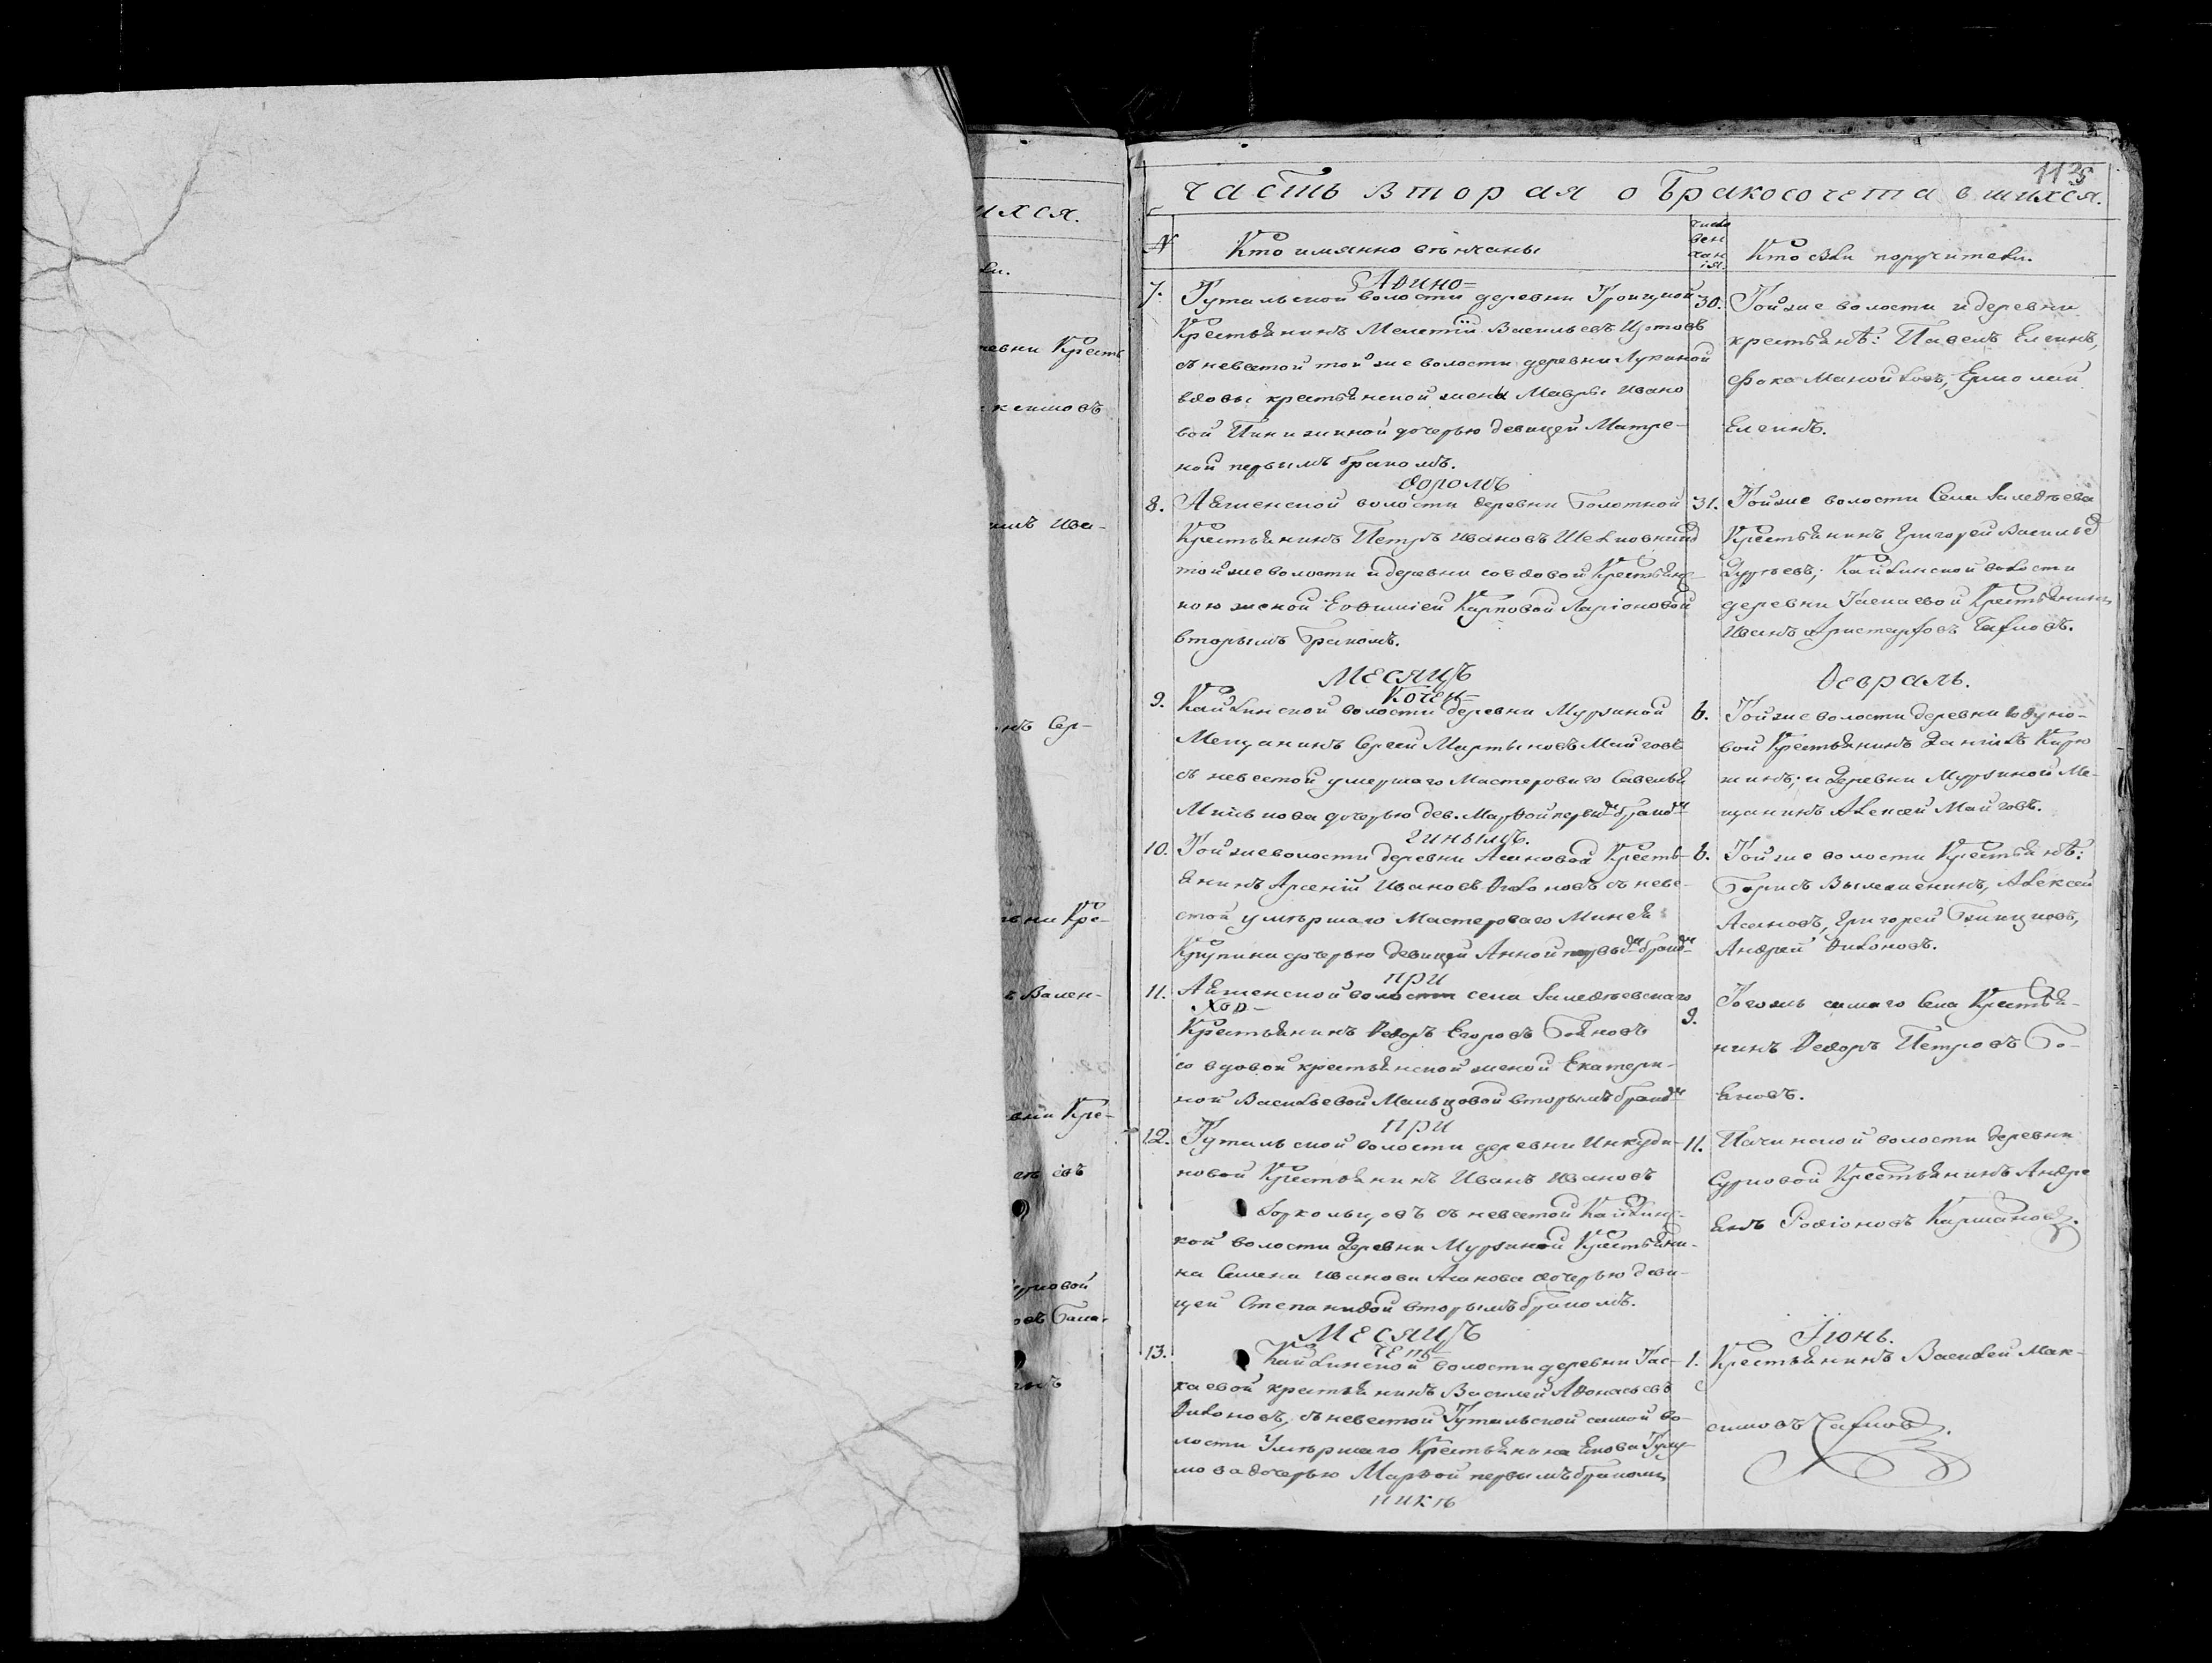 ихся.
ли.
ревни Кресть
ксимовъ
имъ Ива-
нъ Сер-
вни Кре-
ъ Вален-
вни Кре-
113
часть вторая о бракосочетавшихся.
N
Кто имянно вѣнчаны
число
вен
чан
ія.
Кто были поручители.
Авино=
7. Тутальской волости деревни Троицкой
Крестьянинъ Мелетій Васильевъ Изотовъ
съ невѣстой той же волости деревни Лукиной
вдовы крестьянской жены Мавры Ивано
вой Пинижиной дочерью девицей Матре-
ной первымъ бракомъ.
30. Той же волости и деревни
крестьянѣ: Павелъ Елгинъ,
Фока Манойловъ, Ермолай
Елгинъ.
доромъ
8. Аяшенской волости деревни Болотной
Крестьянинъ Петръ Ивановъ
той же волости и деревни со вдовой Крестьянс-
кою женой Евфиміей Карповой Ларіоновой
вторымъ бракомъ.
31. Той же волости Села Заледѣева
Крестьянинъ Григорей Васильев
Кайлинской волости
деревни Таскаевой Крестьянинъ
Иванъ Аристарховъ Чахловъ.
Месяцъ
Февраль.
Кочен=
9. Кайлинской волости деревни Мурзиной
Мещанинъ Сергей Мартыновъ Майговъ
съ невестой умершаго Мастероваго Савелья
дочерью дев. Марфой первым браком
6. Той же волости деревни
вой Крестьянинъ Данилъ Кирю
шинъ; и деревни Мурзиной Ме-
щанинъ Алексей Майговъ.
гинымъ.
10. Той же волости деревни Асановой Кресть-
янинъ Арсеній Ивановъ Филоновъ съ неве-
стой умѣршаго Мастероваго Минея
Крупина дочерью девицей Анной первым браком
6. Той же волости Крестьянѣ:
Борисъ Алексей
Асановъ, Григорей
Андрей Филоновъ.
при
11. Аяшенской волости села Заледѣевскаго
ход-
Крестьянинъ Федоръ Егоровъ Бояновъ
со вдовой крестьянской женой Екатери-
ной Васильевой Мальцовой вторымъ браком
9. Тогожъ самаго Села Крестья-
нинъ Федоръ Петровъ Бо-
яновъ.
при
12. Тутальской волости деревни Инкуди-
новой Крестьянинъ Иванъ Ивановъ
Зоркольцовъ съ невестой Кайлинс-
кой волости Деревни Мурзиной Крестьяни-
на Семена Иванова Асанова дочерью деви-
цей Степанидой вторымъ бракомъ.
11. Пачинской волости деревни
Сурновой Крестьянинъ Андре
янъ Родіоновъ Кармановъ.
Месяцъ
Іюнь.
четъ
13. Кайлинской волости деревни Тас-
каевой крестьянинъ Василей Афонасьевъ
Филоновъ, съ невестой Тутальской самой во-
лости Умѣршаго Крестьянина Якова
мова дочерью Марфой первымъ бракомъ
никъ
1. Крестьянинъ Василей Мак-
симовъ Чахловъ.